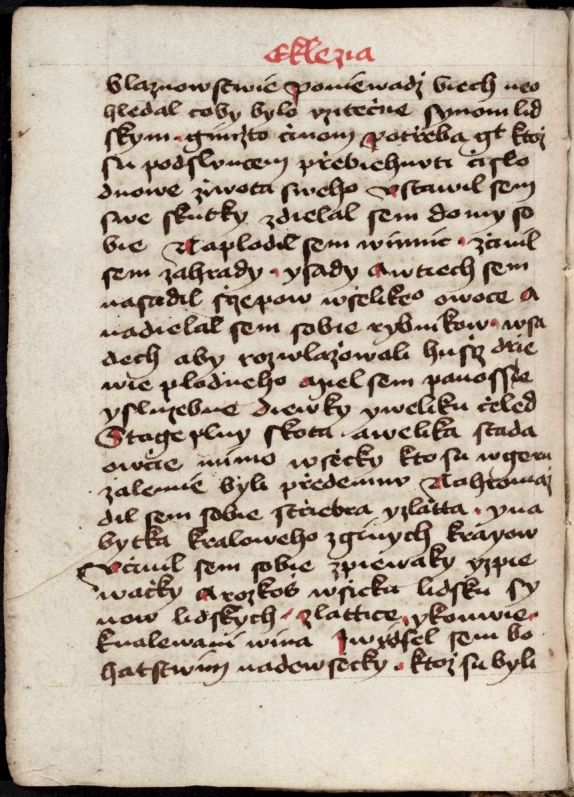 Ekklezia
blaznowstwie poniewadž biech neo
hledal coby bylo vziteċne synom lid
skym gimzto ċinom potřeba gt ktoż
su podsluncem přebiehnuti ċislo
dnowe żiwota sweho Vstawil sem
swe skutky zdielal sem domy so
bie Naplodil sem winnic zċinil
sem zahrady ysady Awtiech sem
nasadil sṫepow wṡelikeo owoce A
nadielal sem sobie rybnikow wsa
dech aby rozwlażowali husṫ drie
wie plodneho Miel sem panosse
ysluzebne diewky yweliku ċeled
Stage plny skota awelika stada
owcie mimo wsecky kto su wgeru
zalemie byli předemnu Nahromaż
dil sem sobie střiebra yzlatta yna
bytka kraloweho zginych kragow
Vċinil sem sobie zpiewaky yzpie
waċky Arozkoṡ wṡicku lidsku sy
now lidskych zlattice ykonwie
knalewani wina Iwzdṡel sem bo
hatstwim nadewsecky ktoż su byli